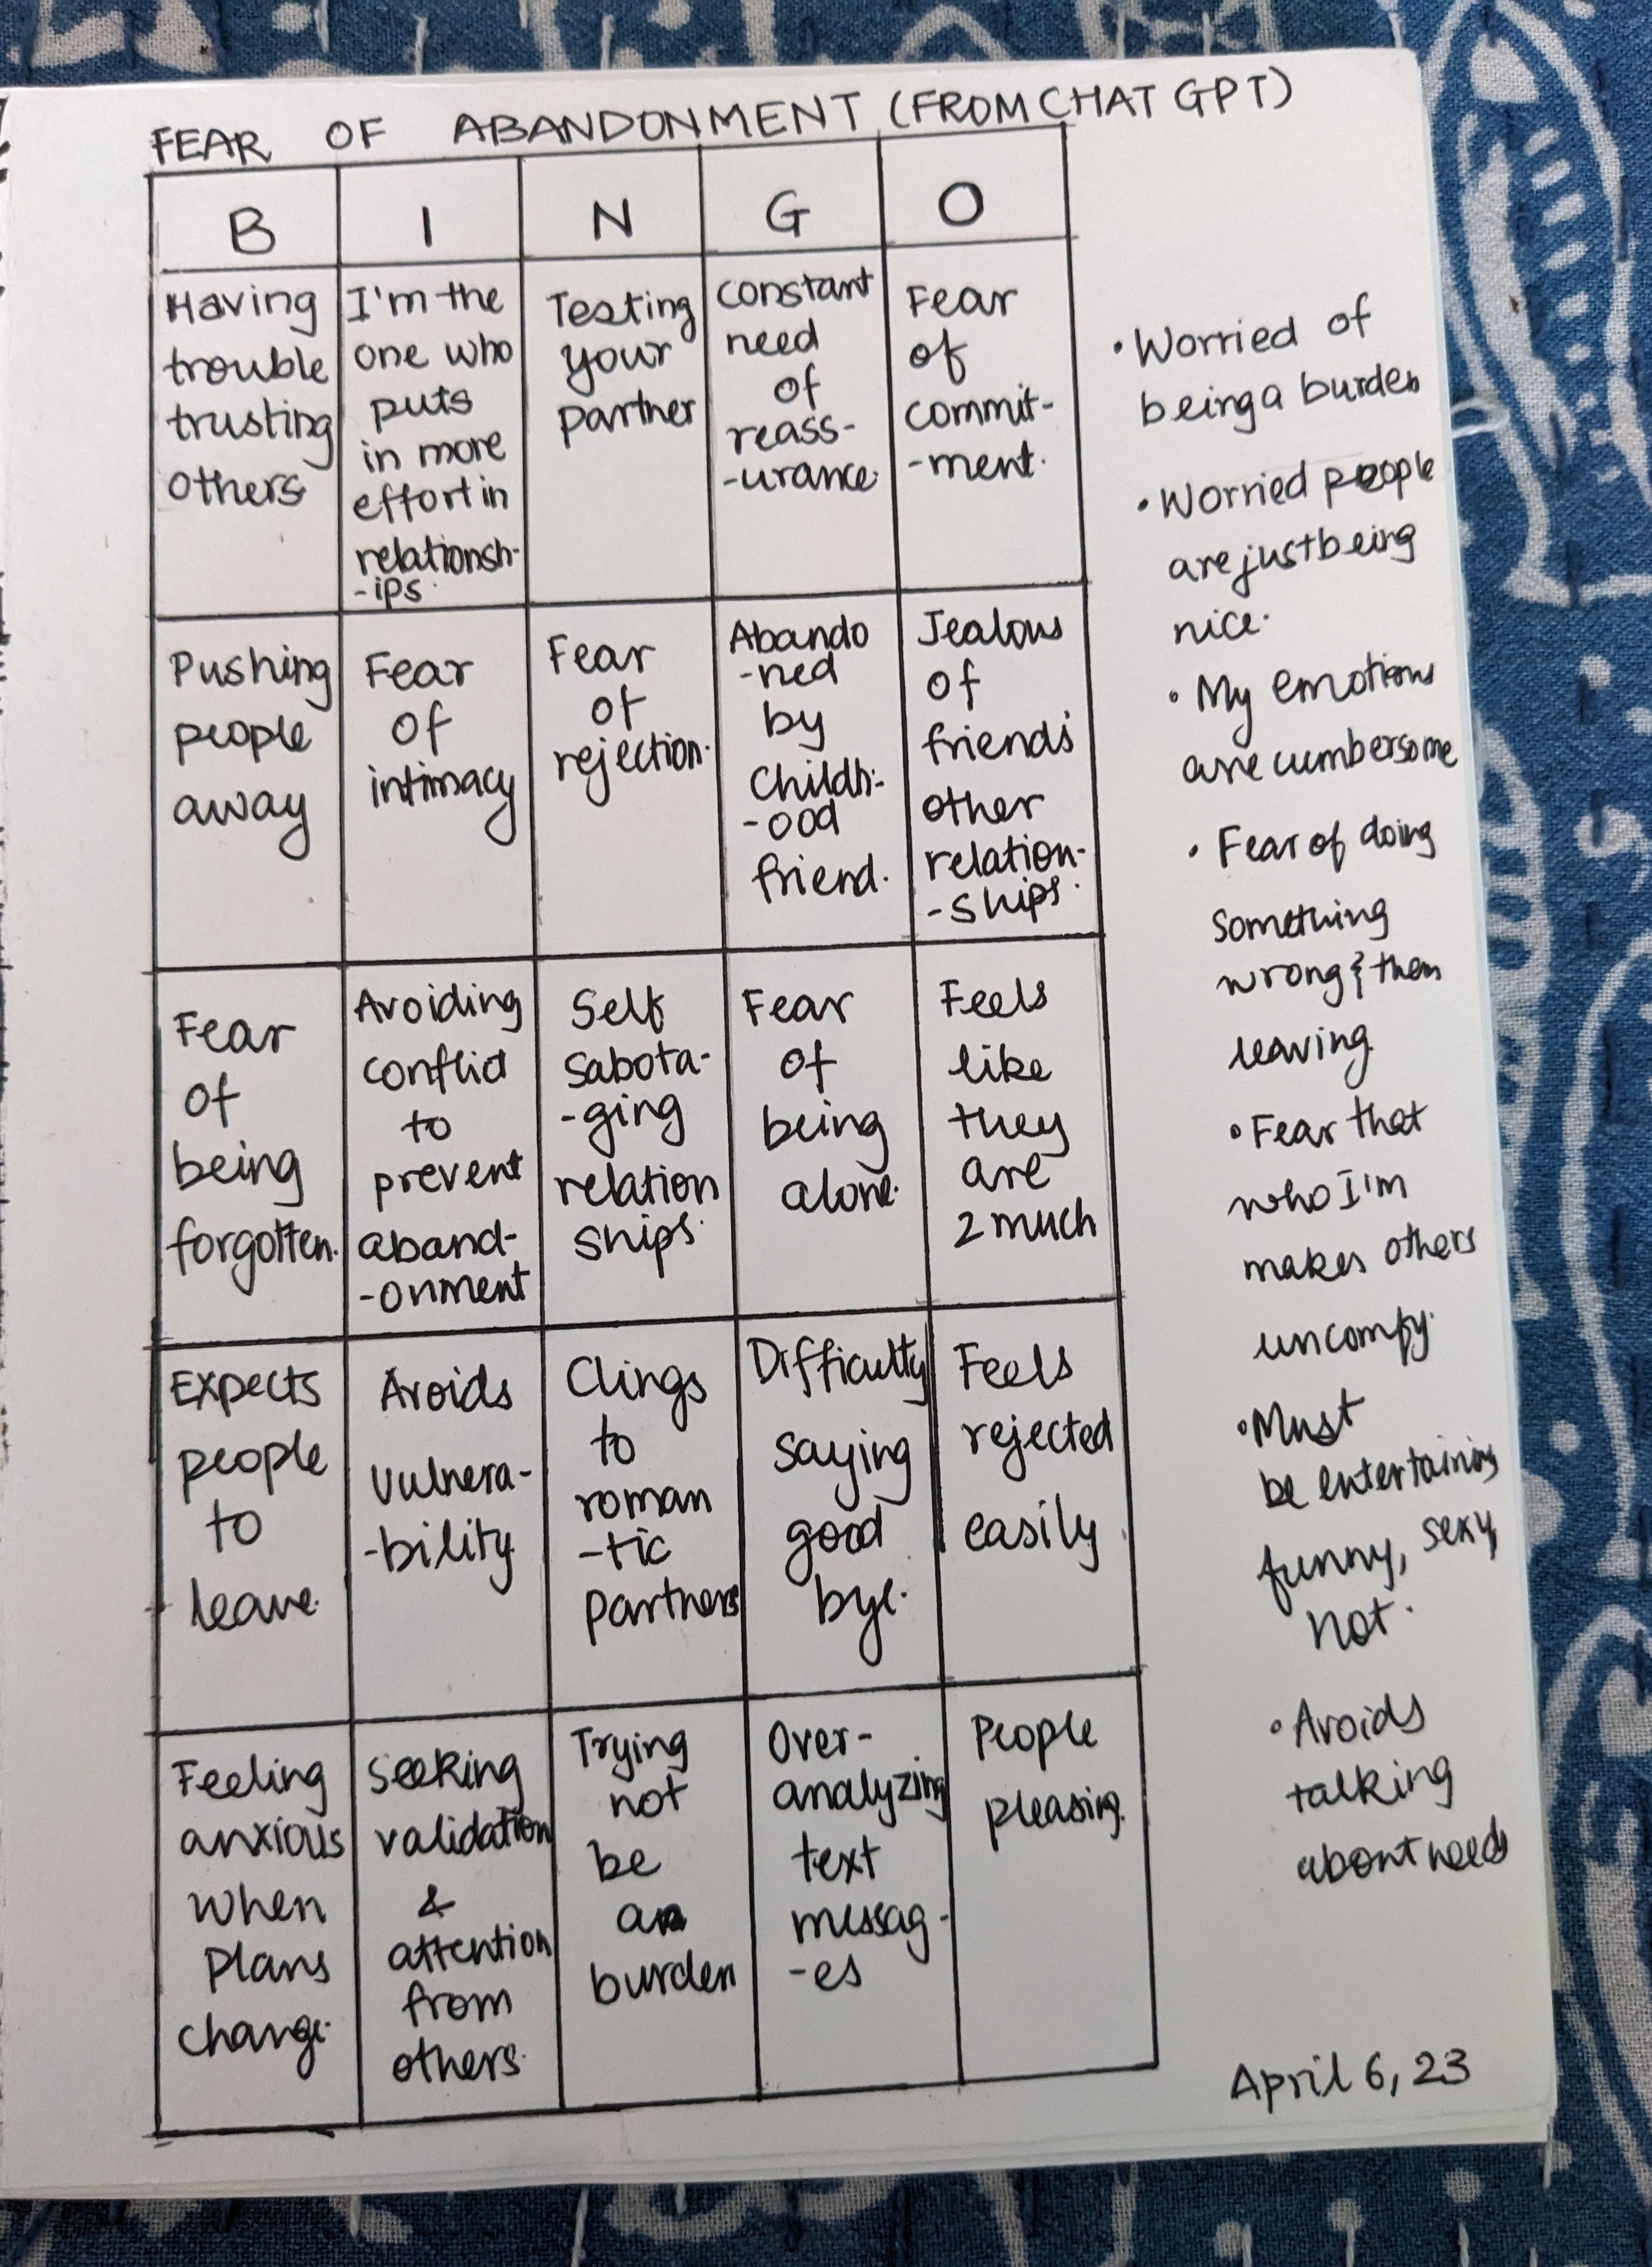 FEAR OF ABANDONMENT (FROM CHAT GPT)
B I N G O
Having
trouble
trusting
others
I'm the
one who
puts
in more
effort in
relationsh-
-ips.
Testing
your
partner
Constant
need
of
reass-
-urance.
Fear
of
commit-
-ment.
Pushing
people
away
Fear
of
intimacy
Fear
of
rejection.
Abando
-ned
by
Childh-
-ood
friend.
Jealous
of
friends'
other
relation-
-ships.
Fear
of
being
forgotten.
Avoiding
conflict
to
prevent
aband-
-onment
Self
sabota-
-ging
relation
ships.
Fear
of
being
alone.
Feels
like
they
are
2 much
Expects
people
to
leave.
Avoids
vulnera-
-bility.
Clings
to
roman
-tic
partners
Difficulty
saying
good
bye.
Feels
rejected
easily.
Feeling
anxious
when
plans
change.
Seeking
validation
&
attention
from
others.
Trying
not
be
a
burden
Over-
analyzing
text
messag-
-es
People
pleasing.
• Worried of
being a burden
• Worried people
are just being
nice.
• My emotions
are cumbersome
• Fear of doing
something
wrong & them
leaving.
• Fear that
who I'm
makes others
uncomfy.
• Must
be entertaining
funny, sexy
not.
• Avoids
talking
about needs
April 6, 23